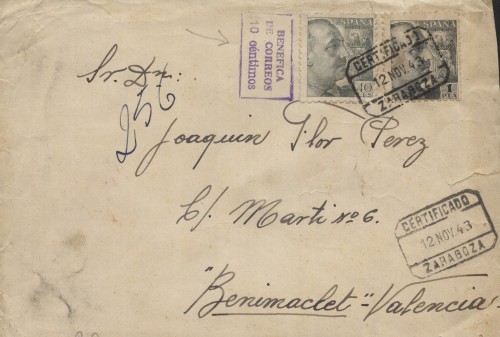 BENEFICA
DE CORREOS
10 céntimos
ESPAÑA
40
ESPAÑA
1
PTA
CERTIFICADO
12 NOV. 43
ZARAGOZA
Sr. Dn.:
256
Joaquin Flor Perez
C/. Marti nº 6.
CERTIFICADO
12 NOV. 43
ZARAGOZA
"Benimaclet" = Valencia =